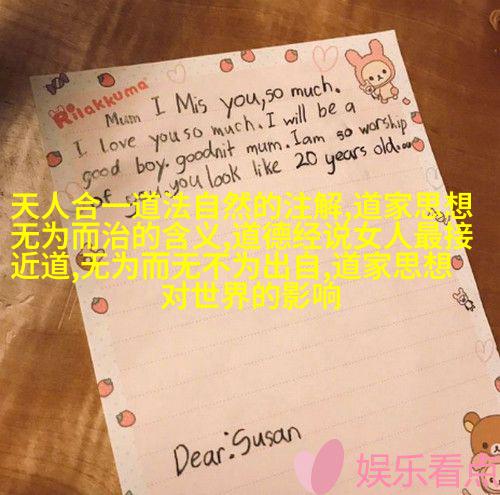 Rilakkuma
Mum I Mis you,so much.
I love you so much. I will be a
good boy. goodnit mum. Iam so worship
of you look like 20 years old...
天人合一道法自然的注解,道家思想
无为而治的含义,道德经说女人最接
近道,无为而无不为出自,道家思想
对世界的影响
Dear:Susan
娱乐看点